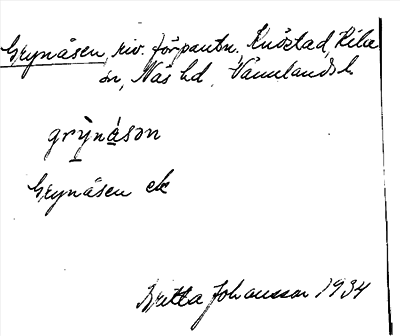 Grynåsen, riv. förpantn. Knöstad, Kila
sn, Näs hd, Värmlands l.
grỳnå̀sən
Grynåsen ek
Britta Johansson 1934